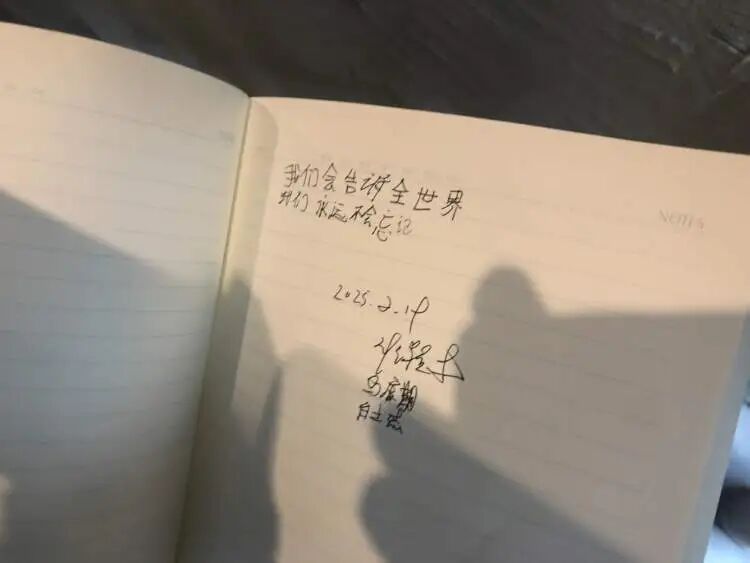 我们会告诉全世界
我们永远不会忘记
NOTES
2025.2.14